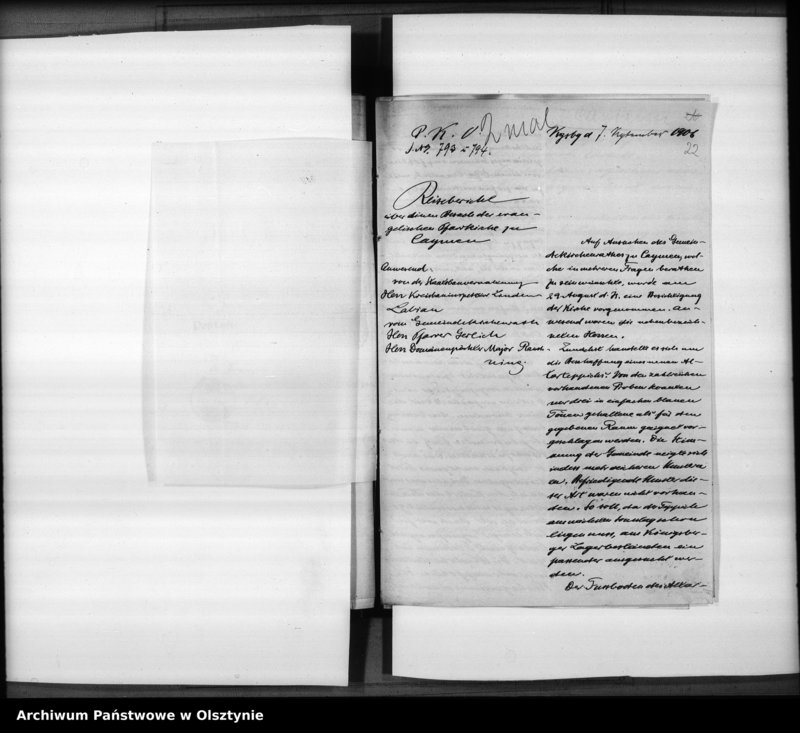 P. K. O. 2 mal
J. No. 793 u 794.
Kgsbg d 7. September 1906
22
Reisebericht
über den Besuch der evan-
gelischen Pfarrkirche zu
Caymen
Anwesend.
von der Staatsbauverwaltung
Herr Kreisbauinspektor Lauden
Labiau
vom Gemeindekirchenrath
Herr Pfarrer Gerlich
Herr Domänenpächter Major
Auf Ansuchen des Gemein-
dekirchenrathes zu Caymen, wel-
che in mehreren Fragen berathen
zu sein wünschte, wurde am
29. August d. Js. eine Besichtigung
der Kirche vorgenommen. An-
wesend waren die nebenbezeich-
neten Herren.
Zunächst handelte es sich um
die Beschaffung eines neuen Al-
tarteppichs. Von den zahlreichen
vorhandenen Proben konnten
nur drei in einfachen blauen
Tönen gehaltene als für den
gegebenen Raum geeignet vor-
geschlagen werden. Die Stim-
mung der Gemeinde neigte sich
indess mehr den Muste
rn. Befriedigende Muster die-
ser Art waren nicht vorhan-
den. So soll, da der Teppich
am nächsten Sonntag schon
liegen muss, aus Königsber-
ger Lagerbeständen ein
passender ausgesucht wer-
den.
Der Fussboden des Altar-
Archiwum Państwowe w Olsztynie